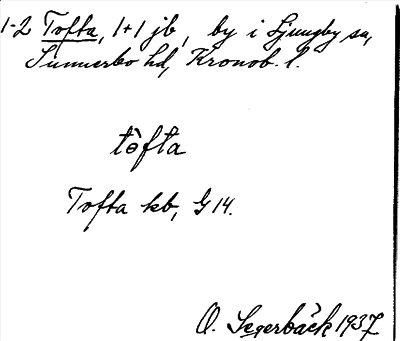 1-2 Tofta, 1+1 jb, by i Ljungby sn,
Sunnerbo hd, Kronob. l.
tòfta
Tofta kb, G 14.
O. Segerbäck 1937